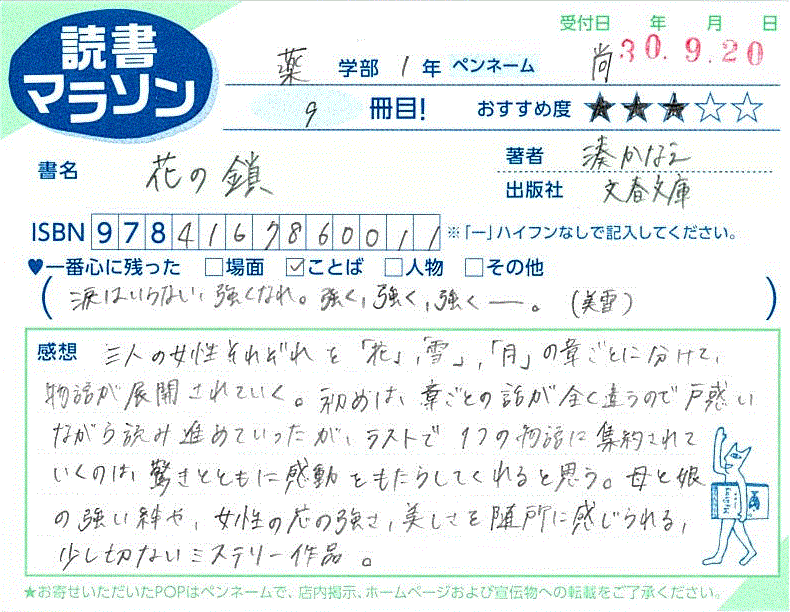 受付日 年 月 日
30.9.20
読書
マラソン
薬 学部 1 年 ペンネーム 尚
9 冊目! おすすめ度 ★★★☆☆
書名 花の鎖
著者 湊かなえ
出版社 文春文庫
ISBN 9784167860011 ※「ー」ハイフンなしで記入してください。
♥一番心に残った □場面 ☑ことば □人物 □その他
(涙はいらない、強くなれ。強く、強く、強く──。(美雪))
感想 三人の女性それぞれを「花」,「雪」,「月」の章ごとに分けて、
物語が展開されていく。初めは、章ごとの話が全く違うので戸惑い
ながら読み進めていったが、ラストで1つの物語に集約されて
いくのは、驚きとともに感動をもたらしてくれると思う。母と娘
の強い絆や、女性の芯の強さ、美しさを随所に感じられる、
少し切ないミステリー作品。
★お寄せいただいたPOPはペンネームで、店内掲示、ホームページおよび宣伝物への転載をご了承ください。